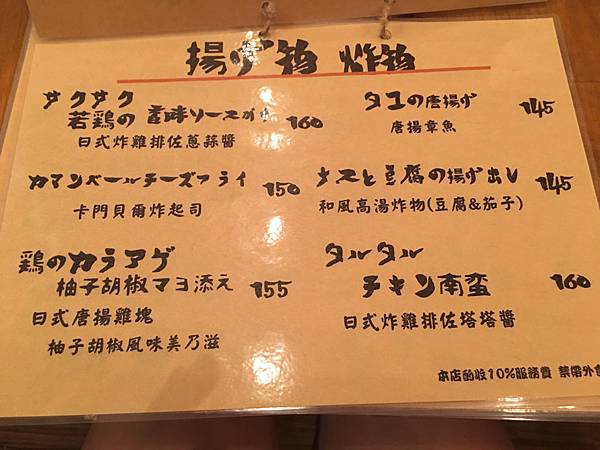 揚げ物 炸物
サクサク
若鶏の 香味ソースがけ 160
日式炸雞排佐蔥蒜醬
カマンベールチーズフライ 150
卡門貝爾炸起司
鶏のカラアゲ
柚子胡椒マヨ添え 155
日式唐揚雞塊
柚子胡椒風味美乃滋
タコの唐揚げ 145
唐揚章魚
ナスと豆腐の揚げ出し 145
和風高湯炸物(豆腐&茄子)
タルタル
チキン南蛮 160
日式炸雞排佐塔塔醬
本店酌收10%服務費 禁帶外食